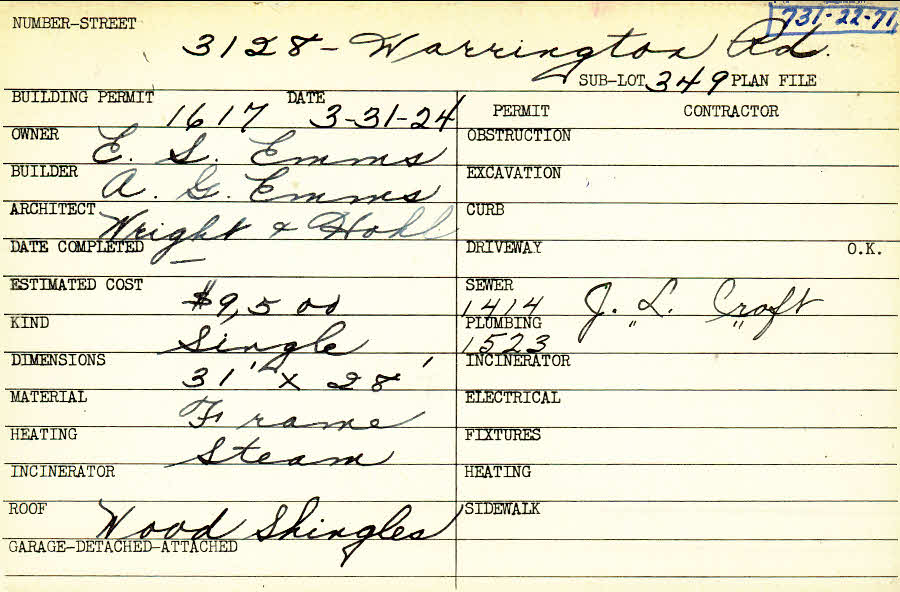 731-22-71
NUMBER-STREET
3128 - Warrington Rd.
SUB-LOT 349 PLAN FILE
BUILDING PERMIT 1617 DATE 3-31-24
PERMIT CONTRACTOR
OWNER E. S. Emms
OBSTRUCTION
BUILDER A. G. Emms
EXCAVATION
ARCHITECT Wright & Hohl
CURB
DATE COMPLETED —
DRIVEWAY O.K.
ESTIMATED COST $9,500
SEWER 1414 J. L. Croft
KIND Single
PLUMBING 1523 " "
DIMENSIONS 31' x 28'
INCINERATOR
MATERIAL Frame
ELECTRICAL
HEATING Steam
FIXTURES
INCINERATOR
HEATING
ROOF Wood Shingles
SIDEWALK
GARAGE-DETACHED-ATTACHED